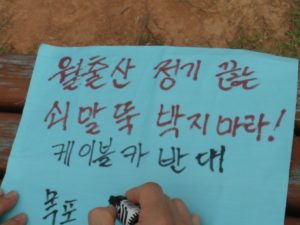 월출산 정기 끊는
쇠말뚝 박지마라!
케이블카 반대
목포